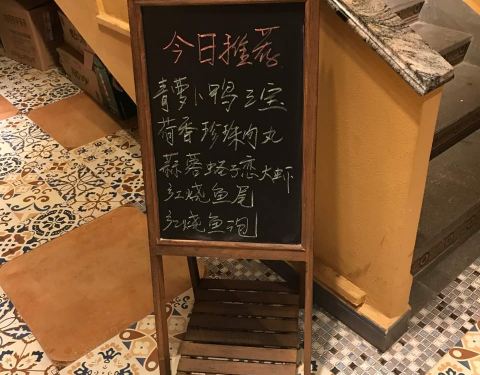 今日推荐
青萝卜鸭三宝
荷香珍珠肉丸
蒜蓉蛏子恋大虾
红烧鱼尾
红烧鱼泡